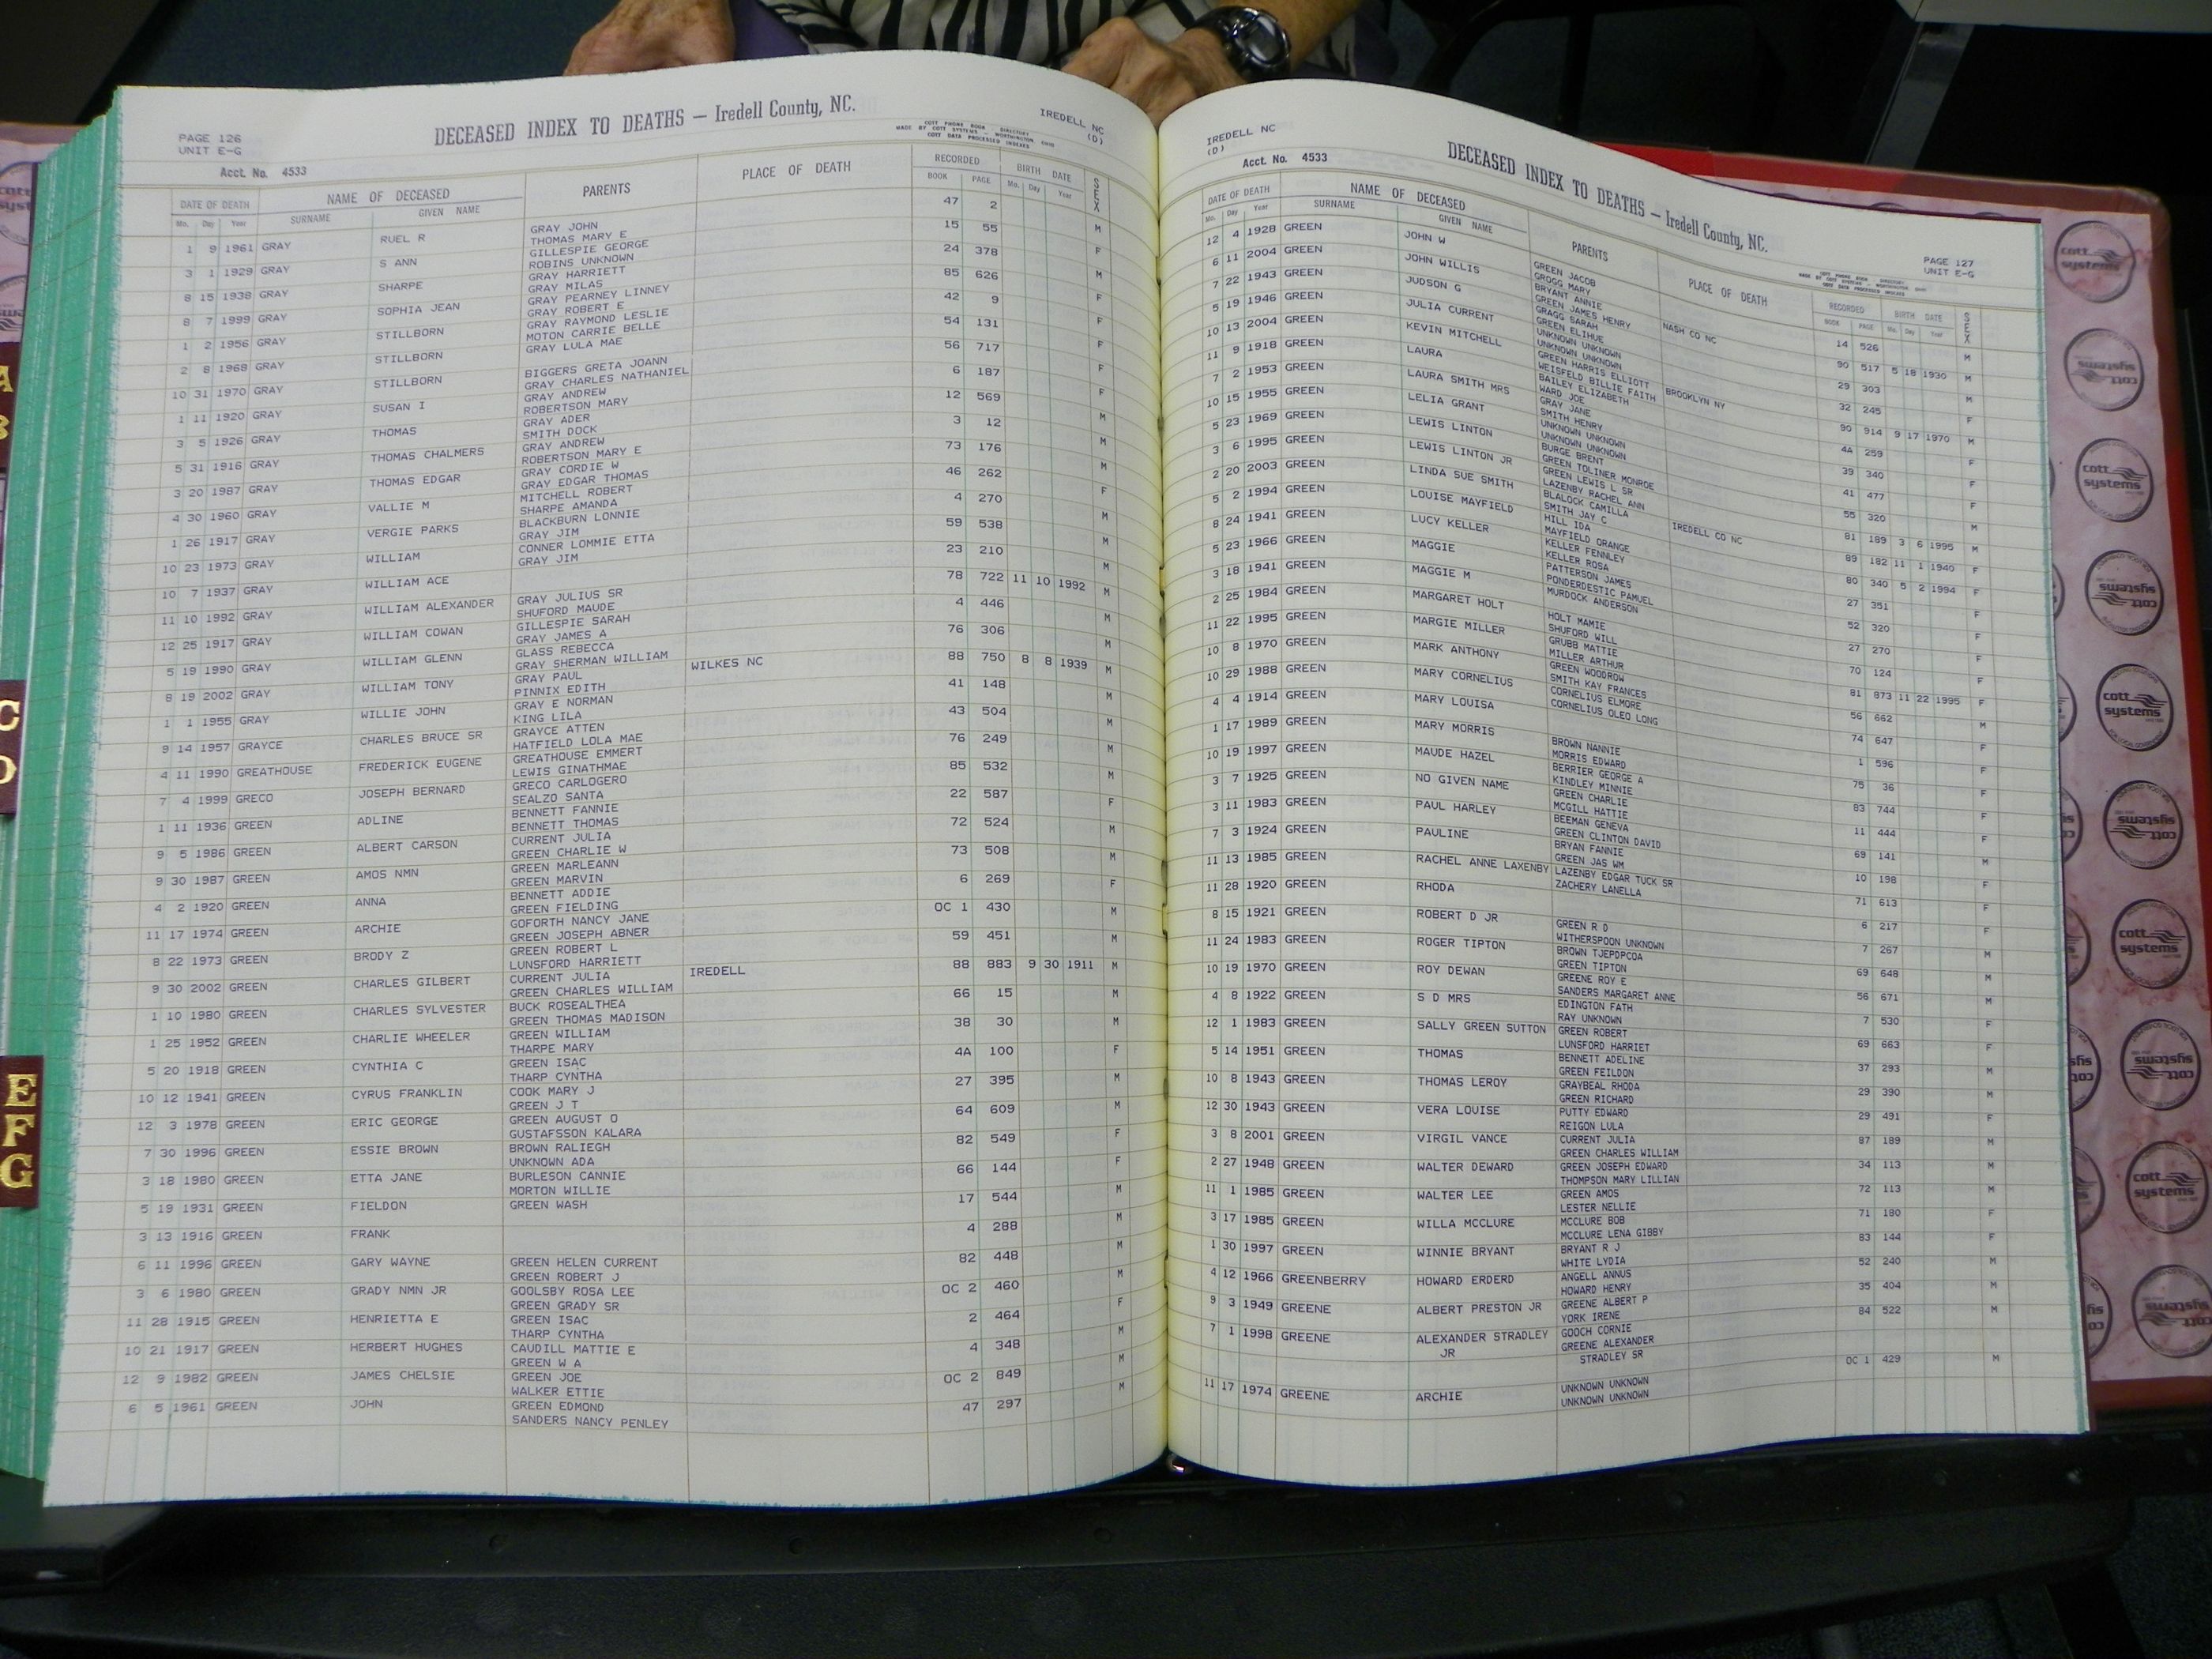 PAGE 126
UNIT E-G
DECEASED INDEX TO DEATHS — Iredell County, NC.
MADE BY COTT SYSTEMS - WORTHINGTON OHIO
COTT DATA PROCESSED INDEXES
IREDELL NC
(D)
Acct. No. 4533
DATE OF DEATH NAME OF DECEASED PARENTS PLACE OF DEATH RECORDED BIRTH DATE SEX
Mo. Day Year SURNAME GIVEN NAME BOOK PAGE Mo. Day Year
1 9 1961 GRAY RUEL R GRAY JOHN 47 2 M
THOMAS MARY E
3 1 1929 GRAY S ANN GILLESPIE GEORGE 15 55 F
ROBINS UNKNOWN
8 15 1938 GRAY SHARPE GRAY HARRIETT 24 378 M
GRAY MILAS
8 7 1999 GRAY SOPHIA JEAN GRAY PEARNEY LINNEY 85 626 F
GRAY ROBERT E
1 2 1956 GRAY STILLBORN GRAY RAYMOND LESLIE 42 9 F
MOTON CARRIE BELLE
2 8 1968 GRAY STILLBORN GRAY LULA MAE 54 131 F
10 31 1970 GRAY STILLBORN BIGGERS GRETA JOANN 56 717 F
GRAY CHARLES NATHANIEL
1 11 1920 GRAY SUSAN I GRAY ANDREW 6 187 F
ROBERTSON MARY
3 5 1926 GRAY THOMAS GRAY ADER 12 569 M
SMITH DOCK
5 31 1916 GRAY THOMAS CHALMERS GRAY ANDREW 3 12 M
ROBERTSON MARY E
3 20 1987 GRAY THOMAS EDGAR GRAY CORDIE W 73 176 M
GRAY EDGAR THOMAS
4 30 1960 GRAY VALLIE M MITCHELL ROBERT 46 262 F
SHARPE AMANDA
1 26 1917 GRAY VERGIE PARKS BLACKBURN LONNIE 4 270 M
GRAY JIM
10 23 1973 GRAY WILLIAM CONNER LOMMIE ETTA 59 538 M
GRAY JIM
10 7 1937 GRAY WILLIAM ACE 23 210 M
11 10 1992 GRAY WILLIAM ALEXANDER GRAY JULIUS SR 78 722 11 10 1992 M
SHUFORD MAUDE
12 25 1917 GRAY WILLIAM COWAN GILLESPIE SARAH 4 446 M
GRAY JAMES A
5 19 1990 GRAY WILLIAM GLENN GLASS REBECCA 76 306 M
GRAY SHERMAN WILLIAM
8 19 2002 GRAY WILLIAM TONY GRAY PAUL WILKES NC 88 750 8 8 1939 M
PINNIX EDITH
1 1 1955 GRAY WILLIE JOHN GRAY E NORMAN 41 148 M
KING LILA
9 14 1957 GRAYCE CHARLES BRUCE SR GRAYCE ATTEN 43 504 M
HATFIELD LOLA MAE
4 11 1990 GREATHOUSE FREDERICK EUGENE GREATHOUSE EMMERT 76 249 M
LEWIS GINATHMAE
7 4 1999 GRECO JOSEPH BERNARD GRECO CARLOGERO 85 532 M
SEALZO SANTA
1 11 1936 GREEN ADLINE BENNETT FANNIE 22 587 F
BENNETT THOMAS
9 5 1986 GREEN ALBERT CARSON CURRENT JULIA 72 524 M
GREEN CHARLIE W
9 30 1987 GREEN AMOS NMN GREEN MARLEANN 73 508 M
GREEN MARVIN
4 2 1920 GREEN ANNA BENNETT ADDIE 6 269 F
GREEN FIELDING
11 17 1974 GREEN ARCHIE GOFORTH NANCY JANE OC 1 430 M
GREEN JOSEPH ABNER
8 22 1973 GREEN BRODY Z GREEN ROBERT L 59 451 M
LUNSFORD HARRIETT
9 30 2002 GREEN CHARLES GILBERT CURRENT JULIA IREDELL 88 883 9 30 1911 M
GREEN CHARLES WILLIAM
1 10 1980 GREEN CHARLES SYLVESTER BUCK ROSEALTHEA 66 15 M
GREEN THOMAS MADISON
1 25 1952 GREEN CHARLIE WHEELER GREEN WILLIAM 38 30 M
THARPE MARY
5 20 1918 GREEN CYNTHIA C GREEN ISAC 4A 100 F
THARP CYNTHA
10 12 1941 GREEN CYRUS FRANKLIN COOK MARY J 27 395 M
GREEN J T
12 3 1978 GREEN ERIC GEORGE GREEN AUGUST O 64 609 M
GUSTAFSSON KALARA
7 30 1996 GREEN ESSIE BROWN BROWN RALIEGH 82 549 F
UNKNOWN ADA
3 18 1980 GREEN ETTA JANE BURLESON CANNIE 66 144 F
MORTON WILLIE
5 19 1931 GREEN FIELDON GREEN WASH 17 544 M
3 13 1916 GREEN FRANK 4 288 M
6 11 1996 GREEN GARY WAYNE GREEN HELEN CURRENT 82 448 M
GREEN ROBERT J
3 6 1980 GREEN GRADY NMN JR GOOLSBY ROSA LEE OC 2 460 M
GREEN GRADY SR
11 28 1915 GREEN HENRIETTA E GREEN ISAC 2 464 F
THARP CYNTHA
10 21 1917 GREEN HERBERT HUGHES CAUDILL MATTIE E 4 348 M
GREEN W A
12 9 1982 GREEN JAMES CHELSIE GREEN JOE OC 2 849 M
WALKER ETTIE
6 5 1961 GREEN JOHN GREEN EDMOND 47 297 M
SANDERS NANCY PENLEY
IREDELL NC
(D)
Acct. No. 4533
DECEASED INDEX TO DEATHS — Iredell County, NC.
PAGE 127
UNIT E-G
DATE OF DEATH NAME OF DECEASED PARENTS PLACE OF DEATH RECORDED BIRTH DATE SEX
Mo. Day Year SURNAME GIVEN NAME BOOK PAGE Mo. Day Year
12 4 1928 GREEN JOHN W GREEN JACOB 14 526 M
GROGG MARY
6 11 2004 GREEN JOHN WILLIS BRYANT ANNIE NASH CO NC 90 517 5 18 1930 M
GREEN JAMES HENRY
7 22 1943 GREEN JUDSON G GRAGG SARAH 29 303 M
GREEN ELIHUE
5 19 1946 GREEN JULIA CURRENT UNKNOWN UNKNOWN 32 245 F
UNKNOWN UNKNOWN
10 13 2004 GREEN KEVIN MITCHELL GREEN HARRIS ELLIOTT BROOKLYN NY 90 914 9 17 1970 M
WEISFELD BILLIE FAITH
11 9 1918 GREEN LAURA BAILEY ELIZABETH 4A 259 F
WARD JOE
7 2 1953 GREEN LAURA SMITH MRS GRAY JANE 39 340 F
SMITH HENRY
10 15 1955 GREEN LELIA GRANT UNKNOWN UNKNOWN 41 477 F
UNKNOWN UNKNOWN
5 23 1969 GREEN LEWIS LINTON BURGE BRENT 55 320 M
GREEN TOLINER MONROE
3 6 1995 GREEN LEWIS LINTON JR GREEN LEWIS L SR IREDELL CO NC 81 189 3 6 1995 M
LAZENBY RACHEL ANN
2 20 2003 GREEN LINDA SUE SMITH BLALOCK CAMILLA 89 182 11 1 1940 F
SMITH JAY C
5 2 1994 GREEN LOUISE MAYFIELD HILL IDA 80 340 5 2 1994 F
MAYFIELD ORANGE
8 24 1941 GREEN LUCY KELLER KELLER FENNLEY 27 351 F
KELLER ROSA
5 23 1966 GREEN MAGGIE PATTERSON JAMES 52 320 F
PONDERDESTIC PAMUEL
3 18 1941 GREEN MAGGIE M MURDOCK ANDERSON 27 270 F
2 25 1984 GREEN MARGARET HOLT HOLT MAMIE 70 124 F
SHUFORD WILL
11 22 1995 GREEN MARGIE MILLER GRUBB MATTIE 81 873 11 22 1995 F
MILLER ARTHUR
10 8 1970 GREEN MARK ANTHONY GREEN WOODROW 56 662 M
SMITH KAY FRANCES
10 29 1988 GREEN MARY CORNELIUS CORNELIUS ELMORE 74 647 F
CORNELIUS OLEO LONG
4 4 1914 GREEN MARY LOUISA 1 596 F
1 17 1989 GREEN MARY MORRIS BROWN NANNIE 75 36 F
MORRIS EDWARD
10 19 1997 GREEN MAUDE HAZEL BERRIER GEORGE A 83 744 F
KINDLEY MINNIE
3 7 1925 GREEN NO GIVEN NAME GREEN CHARLIE 11 444 F
MCGILL HATTIE
3 11 1983 GREEN PAUL HARLEY BEEMAN GENEVA 69 141 M
GREEN CLINTON DAVID
7 3 1924 GREEN PAULINE BRYAN FANNIE 10 198 F
GREEN JAS WM
11 13 1985 GREEN RACHEL ANNE LAXENBY LAZENBY EDGAR TUCK SR 71 613 F
ZACHERY LANELLA
11 28 1920 GREEN RHODA 6 217 F
8 15 1921 GREEN ROBERT D JR GREEN R D 7 267 M
WITHERSPOON UNKNOWN
11 24 1983 GREEN ROGER TIPTON BROWN TJEPDPCOA 69 648 M
GREEN TIPTON
10 19 1970 GREEN ROY DEWAN GREENE ROY E 56 671 M
SANDERS MARGARET ANNE
4 8 1922 GREEN S D MRS EDINGTON FATH 7 530 F
RAY UNKNOWN
12 1 1983 GREEN SALLY GREEN SUTTON GREEN ROBERT 69 663 F
LUNSFORD HARRIET
5 14 1951 GREEN THOMAS BENNETT ADELINE 37 293 M
GREEN FEILDON
10 8 1943 GREEN THOMAS LEROY GRAYBEAL RHODA 29 390 M
GREEN RICHARD
12 30 1943 GREEN VERA LOUISE PUTTY EDWARD 29 491 F
REIGON LULA
3 8 2001 GREEN VIRGIL VANCE CURRENT JULIA 87 189 M
GREEN CHARLES WILLIAM
2 27 1948 GREEN WALTER DEWARD GREEN JOSEPH EDWARD 34 113 M
THOMPSON MARY LILLIAN
11 1 1985 GREEN WALTER LEE GREEN AMOS 72 113 M
LESTER NELLIE
3 17 1985 GREEN WILLA MCCLURE MCCLURE BOB 71 180 F
MCCLURE LENA GIBBY
1 30 1997 GREEN WINNIE BRYANT BRYANT R J 83 144 F
WHITE LYDIA
4 12 1966 GREENBERRY HOWARD ERDERD ANGELL ANNUS 52 240 M
HOWARD HENRY
9 3 1949 GREENE ALBERT PRESTON JR GREENE ALBERT P 35 404 M
YORK IRENE
7 1 1998 GREENE ALEXANDER STRADLEY GOOCH CORNIE 84 522 M
JR GREENE ALEXANDER
STRADLEY SR
11 17 1974 GREENE ARCHIE UNKNOWN UNKNOWN OC 1 429 M
UNKNOWN UNKNOWN
C
D
E
F
G
cott
systems